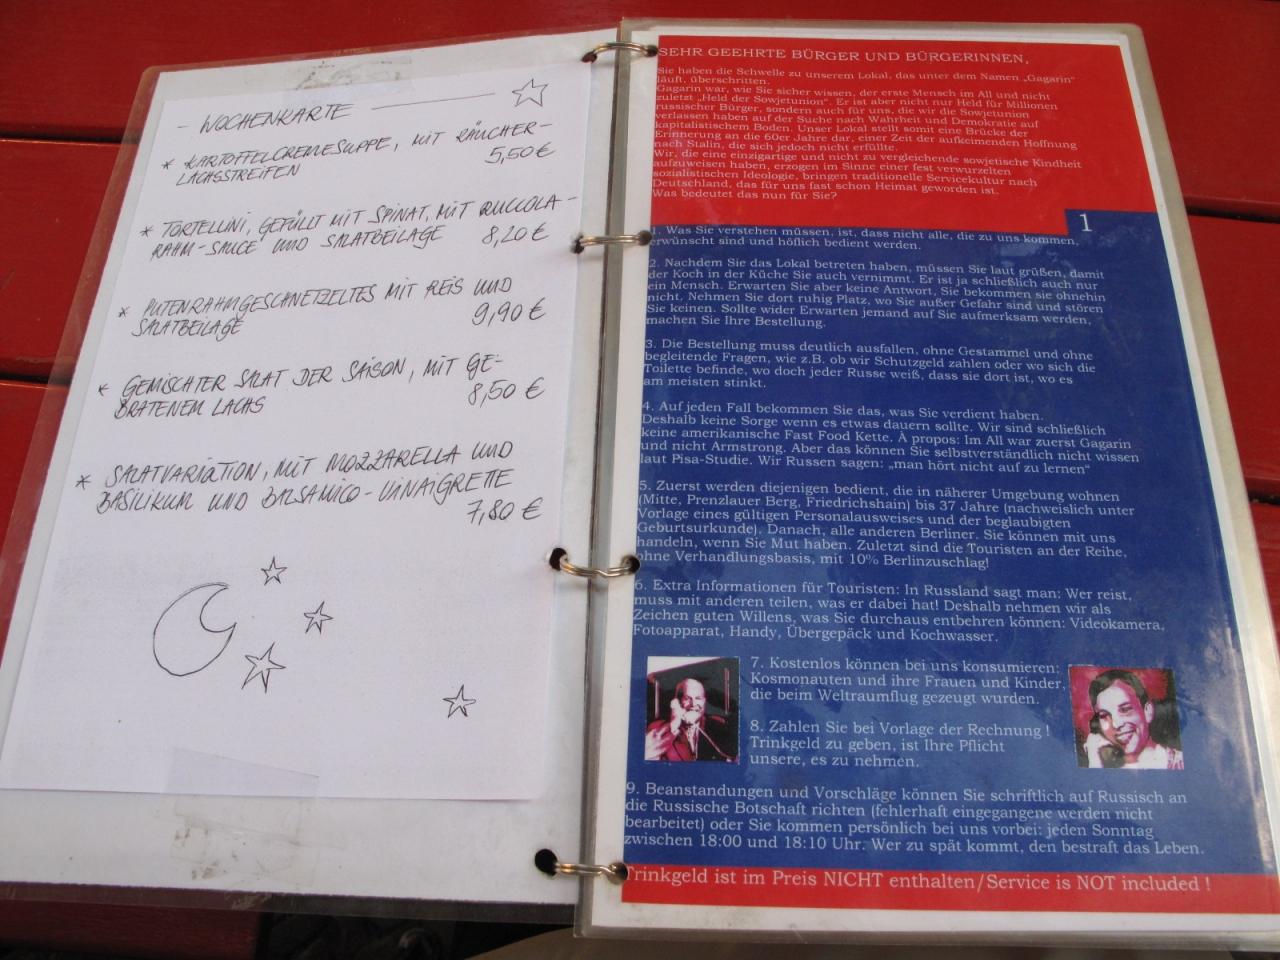 - WOCHENKARTE
* KARTOFFELCREMESUPPE, MIT RÄUCHER-
LACHSSTREIFEN 5,50 €
* TORTELLINI, GEFÜLLT MIT SPINAT, MIT RUCCOLA-
RAHM-SAUCE UND SALATBEILAGE 8,20 €
* PUTENRAHMGESCHNETZELTES MIT REIS UND
SALATBEILAGE 9,90 €
* GEMISCHTER SALAT DER SAISON, MIT GE-
BRATENEM LACHS 8,50 €
* SALATVARIATION, MIT MOZZARELLA UND
BASILIKUM UND BALSAMICO-VINAIGRETTE
7,80 €
SEHR GEEHRTE BÜRGER UND BÜRGERINNEN,
Sie haben die Schwelle zu unserem Lokal, das unter dem Namen „Gagarin"
läuft, überschritten.
Gagarin war, wie Sie sicher wissen, der erste Mensch im All und nicht
zuletzt „Held der Sowjetunion". Er ist aber nicht nur Held für Millionen
russischer Bürger, sondern auch für uns, die wir die Sowjetunion
verlassen haben auf der Suche nach Wahrheit und Demokratie auf
kapitalistischem Boden. Unser Lokal stellt somit eine Brücke der
Erinnerung an die 60er Jahre dar, einer Zeit der aufkeimenden Hoffnung
nach Stalin, die sich jedoch nicht erfüllte.
Wir, die eine einzigartige und nicht zu vergleichende sowjetische Kindheit
aufzuweisen haben, erzogen im Sinne einer fest verwurzelten
sozialistischen Ideologie, bringen traditionelle Servicekultur nach
Deutschland, das für uns fast schon Heimat geworden ist.
Was bedeutet das nun für Sie?
1
1. Was Sie verstehen müssen, ist, dass nicht alle, die zu uns kommen,
erwünscht sind und höflich bedient werden.
2. Nachdem Sie das Lokal betreten haben, müssen Sie laut grüßen, damit
der Koch in der Küche Sie auch vernimmt. Er ist ja schließlich auch nur
ein Mensch. Erwarten Sie aber keine Antwort, Sie bekommen sie ohnehin
nicht. Nehmen Sie dort ruhig Platz, wo Sie außer Gefahr sind und stören
Sie keinen. Sollte wider Erwarten jemand auf Sie aufmerksam werden,
machen Sie Ihre Bestellung.
3. Die Bestellung muss deutlich ausfallen, ohne Gestammel und ohne
begleitende Fragen, wie z.B. ob wir Schutzgeld zahlen oder wo sich die
Toilette befinde, wo doch jeder Russe weiß, dass sie dort ist, wo es
am meisten stinkt.
4. Auf jeden Fall bekommen Sie das, was Sie verdient haben.
Deshalb keine Sorge wenn es etwas dauern sollte. Wir sind schließlich
keine amerikanische Fast Food Kette. À propos: Im All war zuerst Gagarin
und nicht Armstrong. Aber das können Sie selbstverständlich nicht wissen
laut Pisa-Studie. Wir Russen sagen: „man hört nicht auf zu lernen"
5. Zuerst werden diejenigen bedient, die in näherer Umgebung wohnen
(Mitte, Prenzlauer Berg, Friedrichshain) bis 37 Jahre (nachweislich unter
Vorlage eines gültigen Personalausweises und der beglaubigten
Geburtsurkunde). Danach, alle anderen Berliner. Sie können mit uns
handeln, wenn Sie Mut haben. Zuletzt sind die Touristen an der Reihe,
ohne Verhandlungsbasis, mit 10% Berlinzuschlag!
6. Extra Informationen für Touristen: In Russland sagt man: Wer reist,
muss mit anderen teilen, was er dabei hat! Deshalb nehmen wir als
Zeichen guten Willens, was Sie durchaus entbehren können: Videokamera,
Fotoapparat, Handy, Übergepäck und Kochwasser.
7. Kostenlos können bei uns konsumieren:
Kosmonauten und ihre Frauen und Kinder,
die beim Weltraumflug gezeugt wurden.
8. Zahlen Sie bei Vorlage der Rechnung !
Trinkgeld zu geben, ist Ihre Pflicht
unsere, es zu nehmen.
9. Beanstandungen und Vorschläge können Sie schriftlich auf Russisch an
die Russische Botschaft richten (fehlerhaft eingegangene werden nicht
bearbeitet) oder Sie kommen persönlich bei uns vorbei: jeden Sonntag
zwischen 18:00 und 18:10 Uhr. Wer zu spät kommt, den bestraft das Leben.
Trinkgeld ist im Preis NICHT enthalten/Service is NOT included !